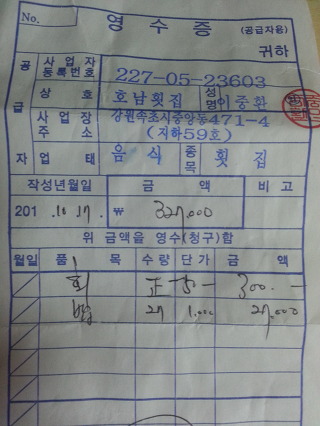 No.
영 수 증 (공급자용)
귀하
공급자
사업자등록번호 227-05-23603
상 호 호남횟집 성명 이중환
사업장주소 강원속초시중앙동471-4
(지하59호)
업 태 음 식 종목 횟 집
작성년월일 금 액 비 고
201 . 10. 17. ₩ 327,000
위 금액을 영수(청구)함
월일 품 목 수량 단가 금 액
회 正 300.—
27 1,000 27,000